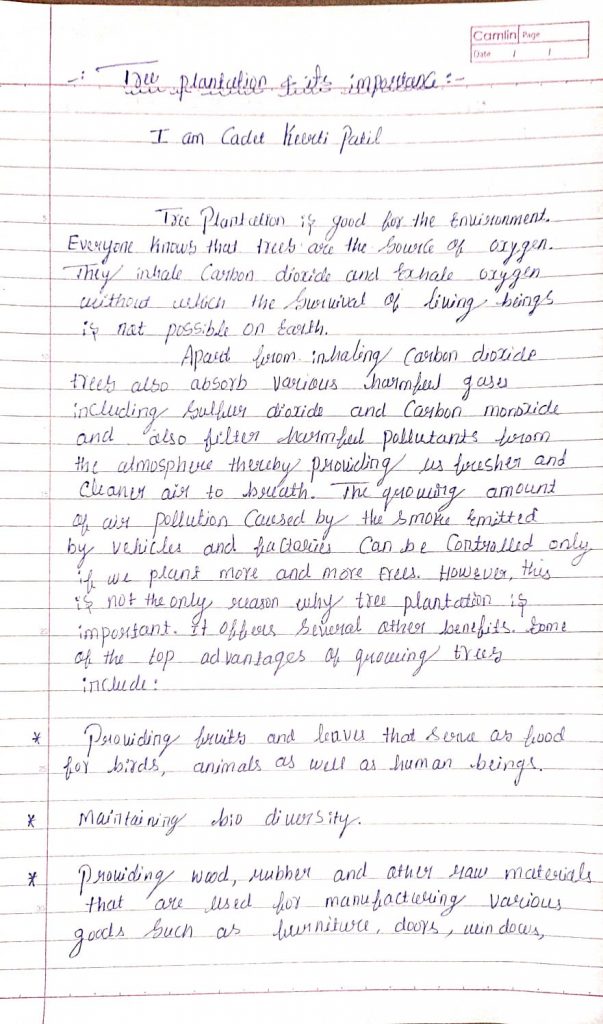 Camlin Page
Date / /
-: Tree plantation & its importance :-
I am Cadet Keerti Patil
Tree Plantation is good for the Environment.
Everyone knows that trees are the source of oxygen.
They inhale Carbon dioxide and Exhale oxygen
without which the survival of living beings
is not possible on Earth.
Apart from inhaling Carbon dioxide
trees also absorb various harmful gases
including Sulfur dioxide and Carbon monoxide
and also filter harmful pollutants from
the atmosphere thereby providing us fresher and
Cleaner air to breath. The growing amount
of air pollution Caused by the smoke Emitted
by vehicles and factories Can be Controlled only
if we plant more and more trees. However, this
is not the only reason why tree plantation is
important. It offers several other benefits. Some
of the top advantages of growing trees
include:
* Providing fruits and leaves that serve as food
for birds, animals as well as human beings.
* Maintaining bio diversity.
* Providing wood, rubber and other raw materials
that are used for manufacturing various
goods such as furniture, doors, windows,